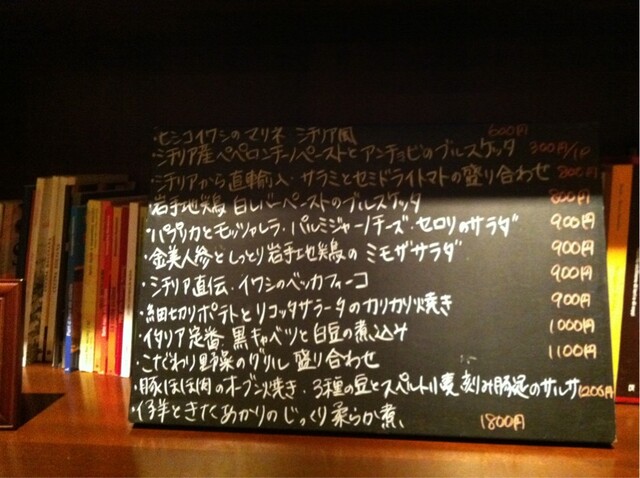 ・セシコイワシのマリネ シチリア風 600円
・シチリア産ペペロンチーノペーストとアンチョビのブルスケッタ 300円/1P
・シチリアから直輸入・サラミとセミドライトマトの盛り合わせ 800円
・岩手地鶏 白レバーペーストのブルスケッタ 800円
・パプリカとモッツァレラ・パルミジャーノチーズ・セロリのサラダ 900円
・金美人参としっとり岩手地鶏の ミモザサラダ 900円
・シチリア直伝・イワシのベッカフィーコ 900円
・細切りポテトとリコッタサラータのカリカリ焼き 900円
・イタリア定番・黒キャベツと白豆の煮込み 1000円
・こだわり野菜のグリル 盛り合わせ 1100円
・豚ほほ肉のオーブン焼き・3種の豆とスペルト小麦、刻み豚足のサルサ 1200円
・仔羊ときたあかりのじっくり柔らか煮、 1800円